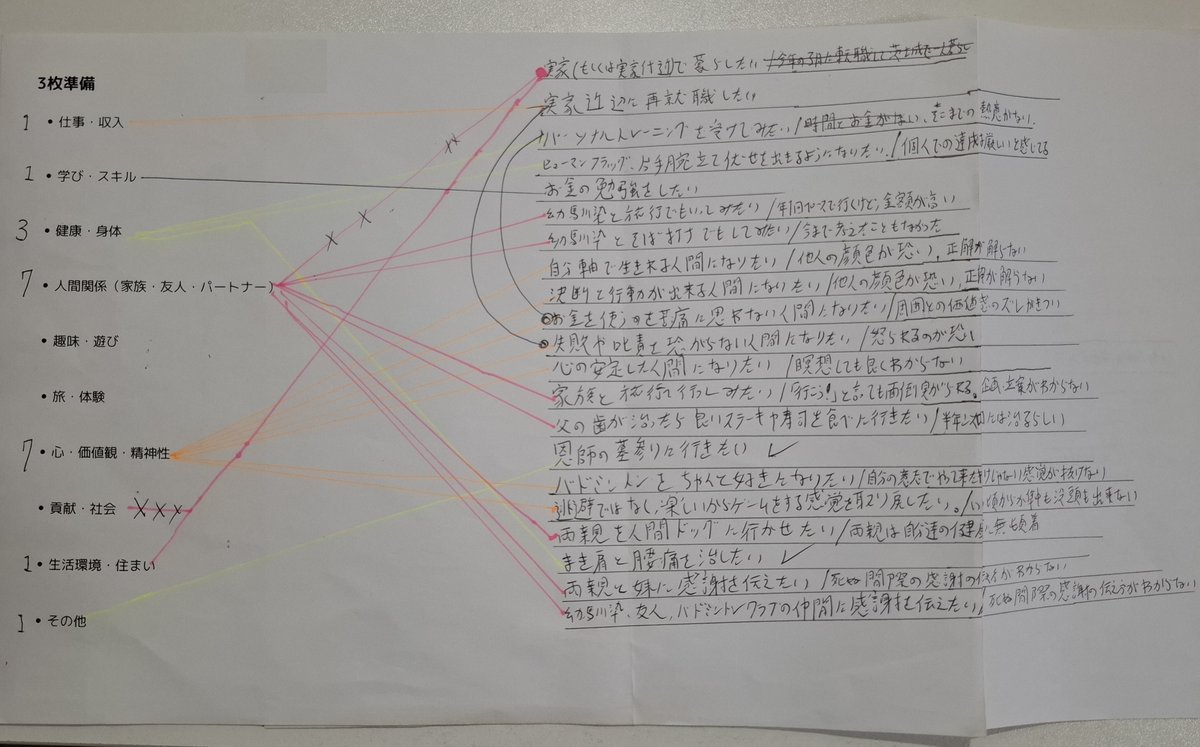 3枚準備
1 • 仕事・収入
1 • 学び・スキル
3 • 健康・身体
7 • 人間関係（家族・友人・パートナー）
• 趣味・遊び
• 旅・体験
7 • 心・価値観・精神性
• 貢献・社会
1 • 生活環境・住まい
1 • その他
実家(もしくは実家付近)で暮らしたい
実家近辺に再就職したい
パーソナルトレーニングを受けてみたい/時間とお金がない、そこまでの熱意がない.
ヒューマンフラッグ、片手腕立て伏せを出きるようになりたい./個人での達成は厳しいと感じてる
お金の勉強をしたい
幼馴染と旅行でもいってみたい/年1回ペースで行くけど、金額が高い
幼馴染とそば打ちでもしてみたい/今まで考えたこともなかった
自分軸で生きれる人間になりたい/他人の顔色が恐い、正解が解らない
決断と行動が出来る人間になりたい/他人の顔色が恐い、正解が解らない
お金を使うのを苦痛に思わない人間になりたい/周囲との価値感のズレがきつい
失敗や叱責を恐がらない人間になりたい/怒られるのが恐い
心の安定した人間になりたい/瞑想しても良くわからない
家族と旅行で行ってみたい/「行こう!」と言っても面倒臭がられる。企画立案がわからない
父の歯が治ったら良いステーキや寿司を食べに行きたい/半年以内には治るらしい
恩師の墓参りに行きたい ✓
バドミントンをちゃんと好きになりたい/自分の意志でやって来たわけじゃない感覚が抜けない
逃避ではなく、楽しいからゲームをする感覚を取り戻したい。/いつ頃からか熱も没頭も出来ない
両親を人間ドッグに行かせたい/両親は自分達の健康に無頓着
まき肩と腰痛を治したい ✓
両親と妹に感謝を伝えたい/死ぬ間際の感謝の伝え方がわからない
幼馴染、友人、バドミントンクラブの仲間に感謝を伝えたい/死ぬ間際の感謝の伝え方がわからない